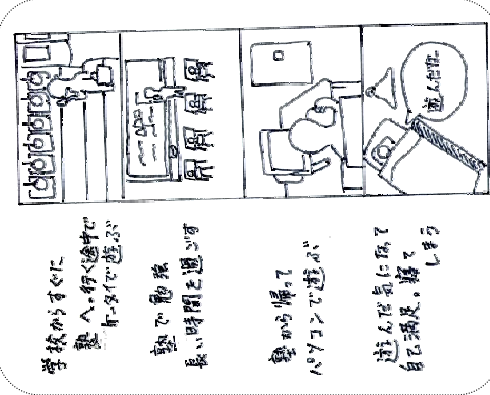 学校からすぐに
塾へ。行く途中で
ケータイで遊ぶ
塾で勉強
長い時間を過ごす
塾から帰って
パソコンで遊ぶ
遊んだな
遊んだ気になって
自己満足。寝て
しまう